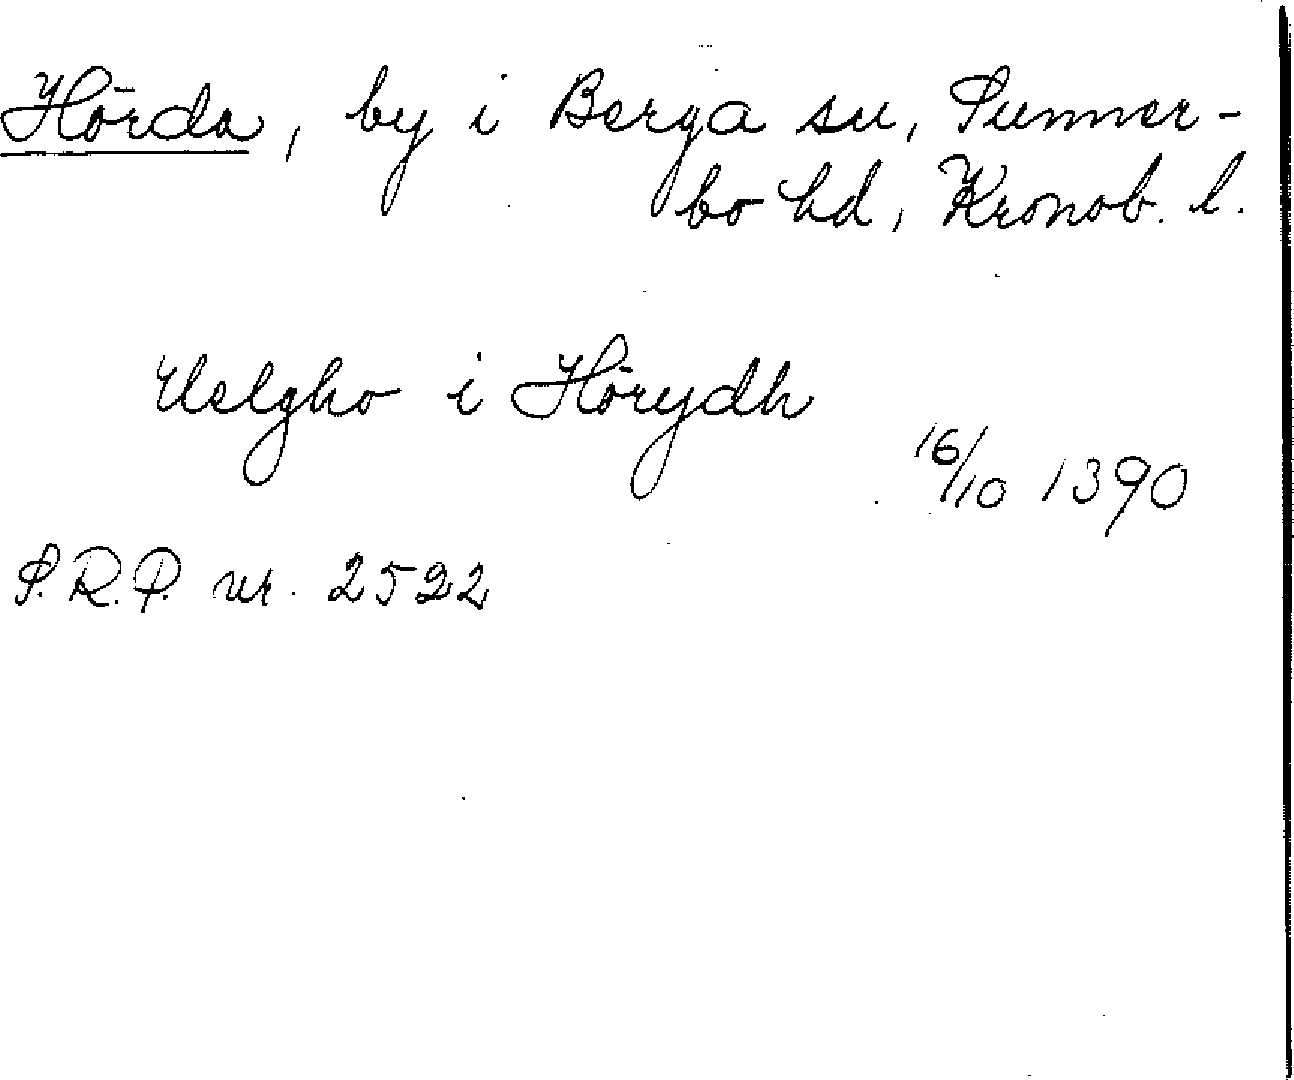 Hörda, by i Berga sn, Sunner-
bo hd, Kronob. l.
Helgho i Hörydh
16/10 1390
S.R.P. nr. 2522